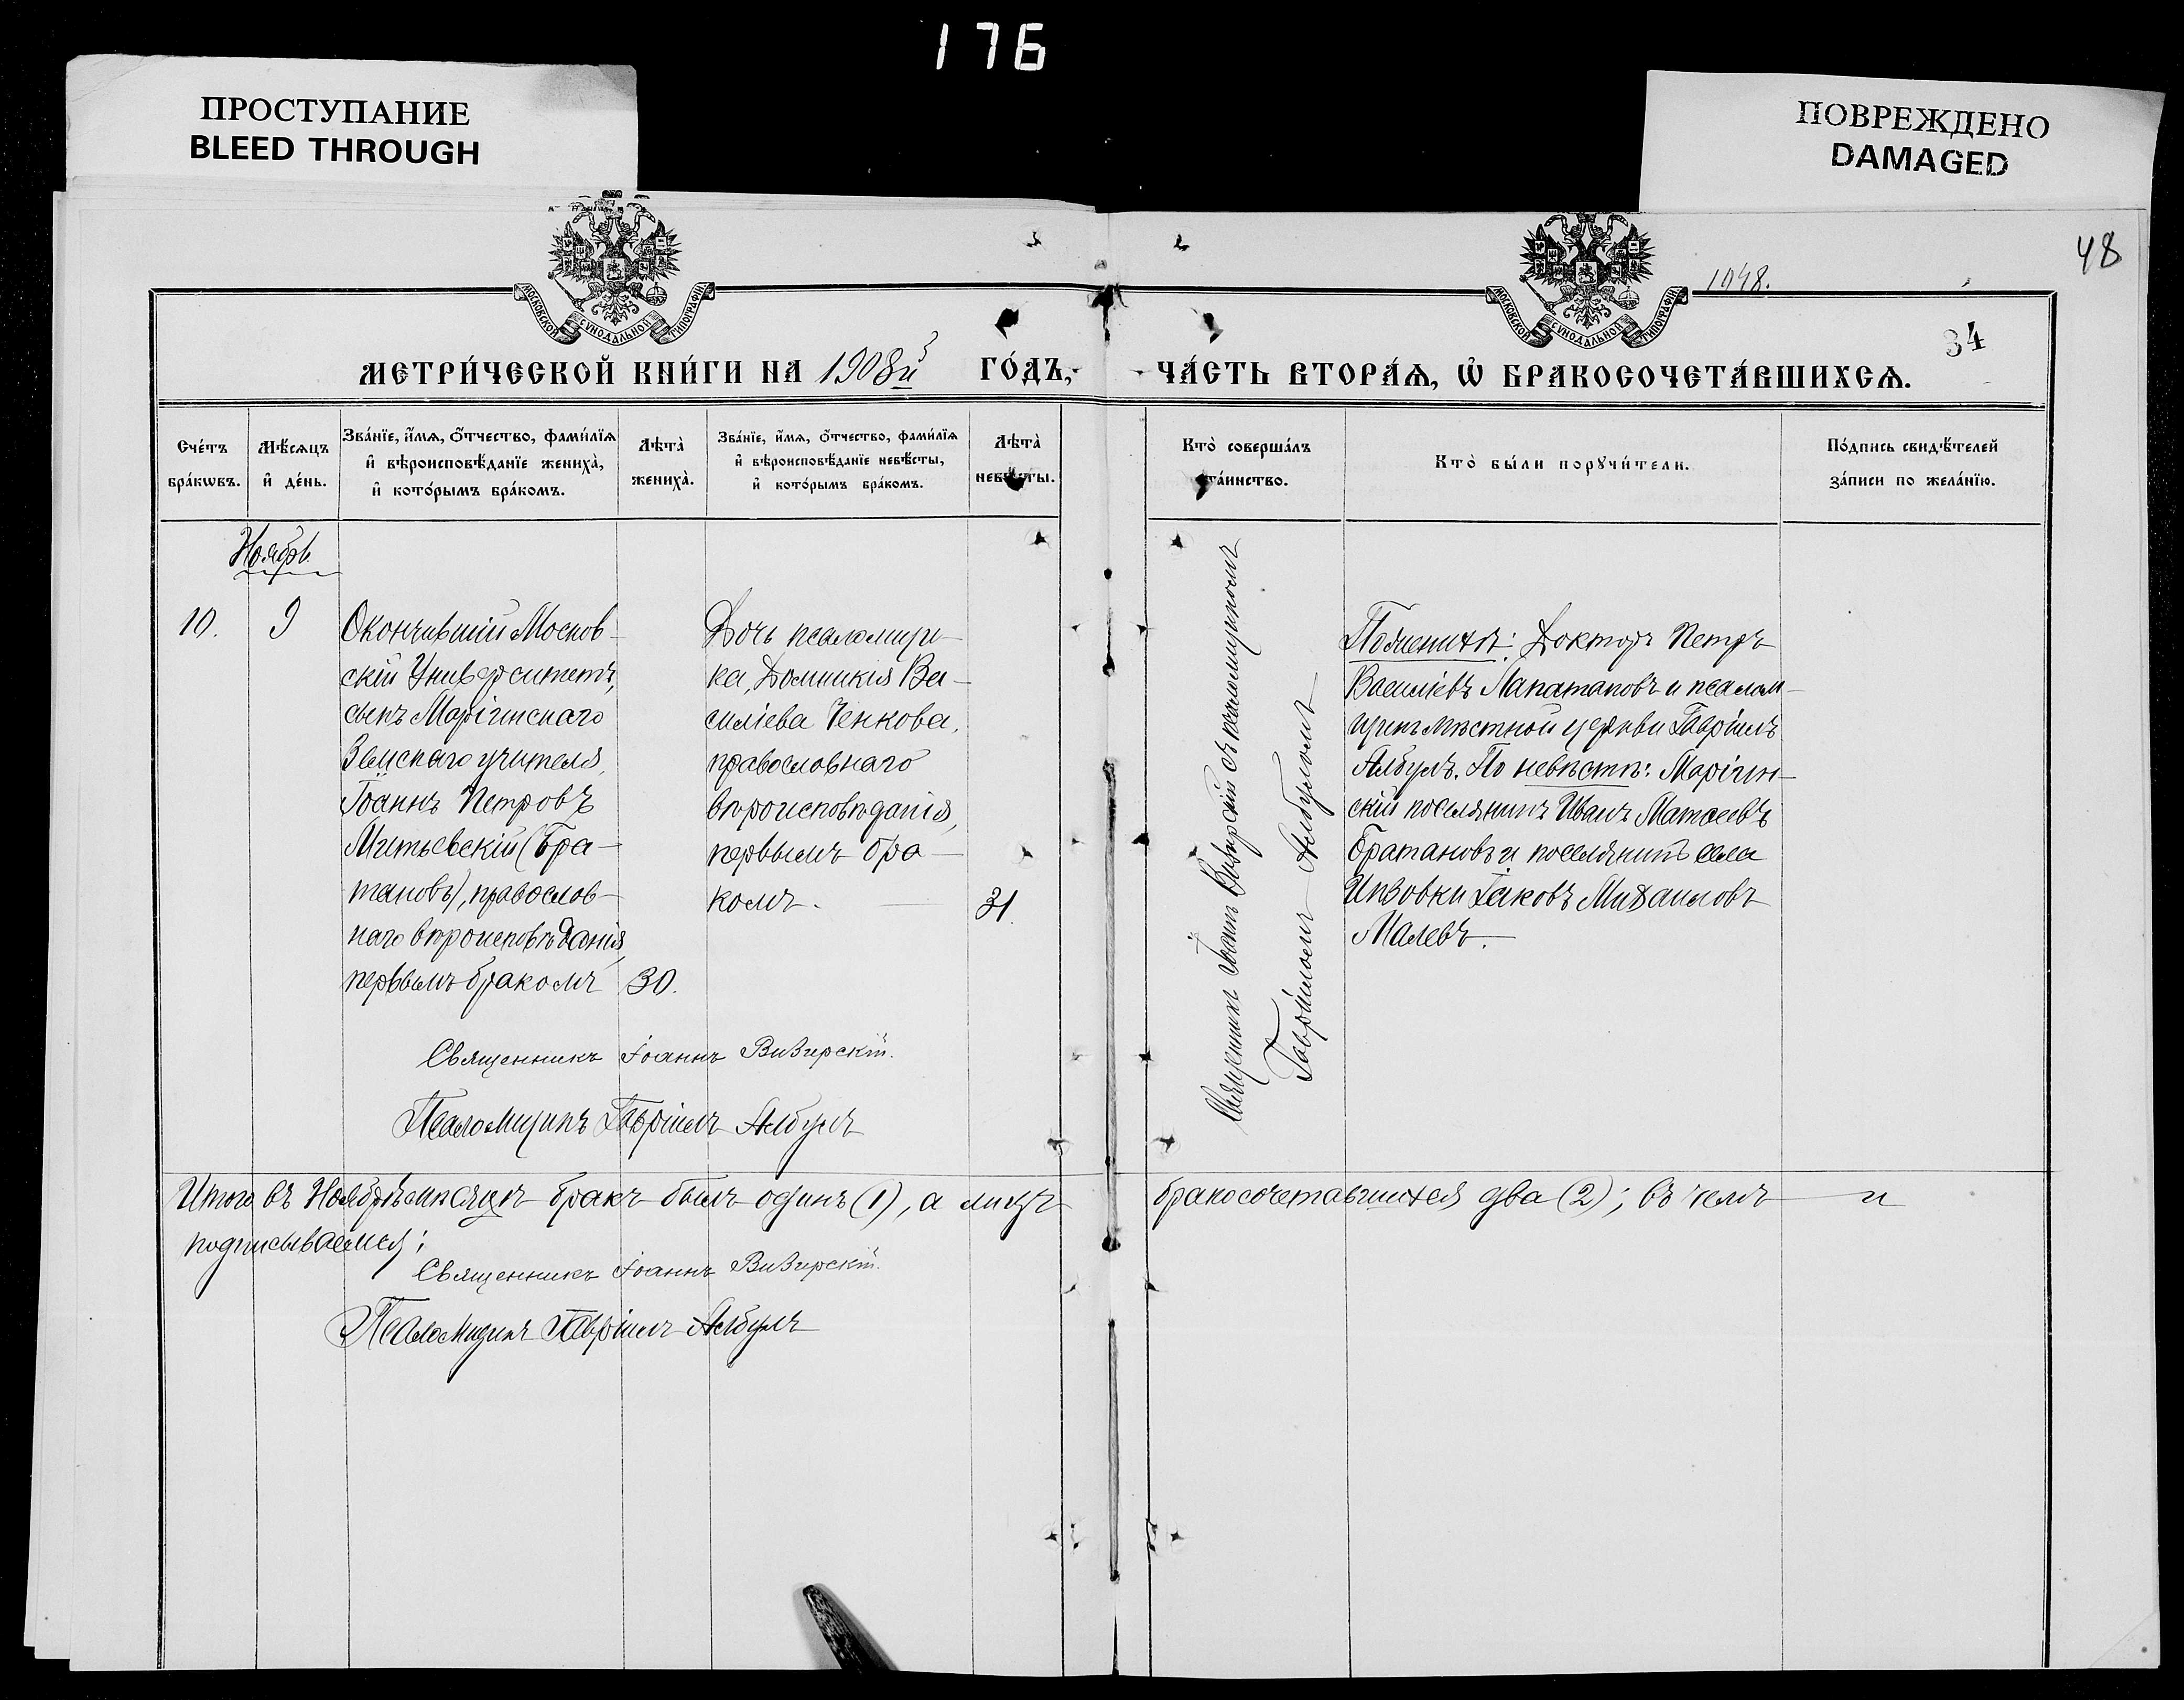 176
ПРОСТУПАНИЕ
BLEED THROUGH
ПОВРЕЖДЕНО
DAMAGED
48
1948.
34
МОСКОВСКОЙ СѴНОДАЛЬНОЙ ТИПОГРАФІИ
МОСКОВСКОЙ СѴНОДАЛЬНОЙ ТИПОГРАФІИ
МЕТРИ́ЧЕСКОЙ КНИ́ГИ НА 1908й ГО́ДЪ,
ЧА́СТЬ ВТОРА́Ѧ, Ѡ҆ БРАКОСОЧЕТА́ВШИХСѦ.
Счéтъ
брáкѡвъ.
Мѣ́сѧцъ
и҆ дéнь.
Звáнїе, и҆́мѧ, ѻ҆́тчество, фами́лїѧ
и҆ вѣроисповѣ́данїе женихà,
и҆ котóрымъ брáкомъ.
Лѣтà
женихà.
Звáнїе, и҆́мѧ, ѻ҆́тчество, фами́лїѧ
и҆ вѣроисповѣ́данїе невѣ́сты,
и҆ котóрымъ брáкомъ.
Лѣтà
невѣ́сты.
Ктò совершáлъ
тáинство.
Ктò бы́ли порꙋчи́тели.
Пóдпись свидѣ́телей
зáписи по желáнїю.
Ноябрь.
10.
9
Окончившій Москов-
скій Университетъ,
сынъ Маріинскаго
Земскаго учителя,
Іоаннъ Петровъ
Митьевскій (Бра-
тановъ), православ-
наго вѣроисповѣданія,
первымъ бракомъ
30.
Дочь псаломщи-
ка, Домникія Ва-
силіева Ченкова,
православнаго
вѣроисповѣданія,
первымъ бра-
комъ.
31.
Священникъ Іоаннъ Визирскій съ псаломщикомъ
Гавріиломъ Албуломъ
По женихѣ: Докторъ Петръ
Василіевъ Папатановъ и псалом-
щикъ мѣстной церкви Гавріилъ
Албулъ. По невѣстѣ: Маріин-
скій поселянинъ Иванъ Матѳеевъ
Братановъ и поселянинъ села
Инзовки Іаковъ Михаиловъ
Малевъ.
Священникъ Іоаннъ Визирскій.
Псаломщикъ Гавріилъ Албулъ
Итого въ Ноябрѣ мѣсяцѣ бракъ былъ одинъ (1), а лицъ бракосочетавшихся два (2); въ чемъ и
подписываемся:
Священникъ Іоаннъ Визирскій.
Псаломщикъ Гавріилъ Албулъ